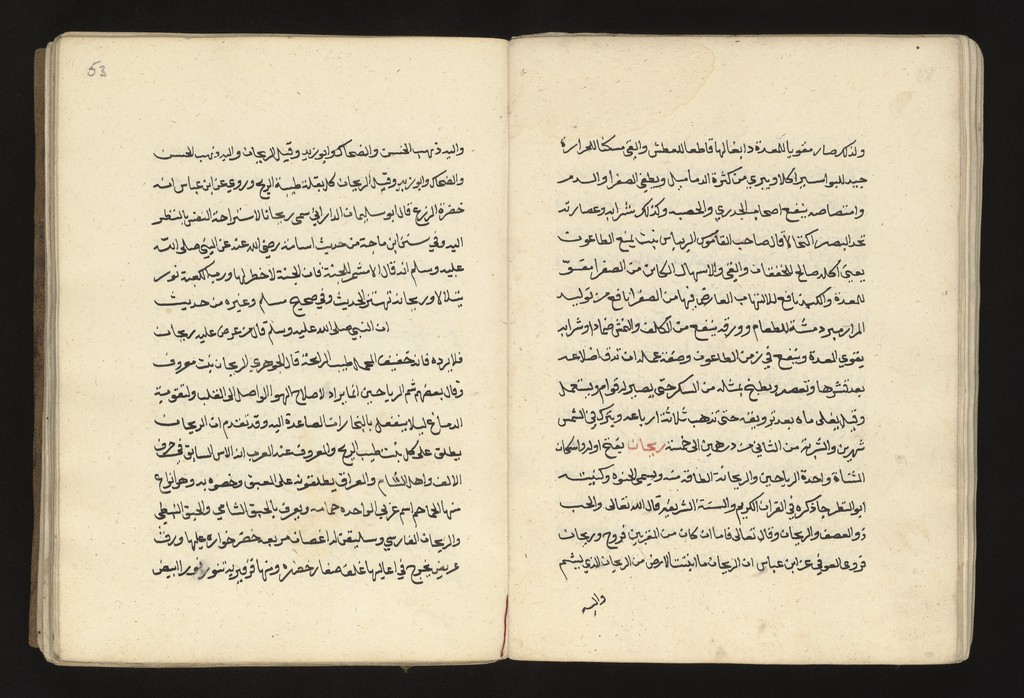 ولذلك صار مقويا للمعدة دابغا لها قاطعا للعطش والقي مسكنا للحرارة
جيد للبواسير اكلا ويبري من كثرة الدماميل ويطفي الصفرا والدم
وامتصاصه ينفع اصحاب الجدري والحصبه وكذلك شرابه وعصارته
تحد البصر اكتحالا قال صاحب القاموس الريباس نبت ينفع الطاعون
يعني اكله صالح للخفقان والقي والاسهال الكاين من الصفرا يقوي
المعدة والكبد نافع للالتهاب العارض فيها من الصفرا نافع من توليد
المرار جيد مشه للطعام وورقه ينفع من الكلف والنمش ضمادا وشرابه
يقوي المعدة وينفع في زمن الطاعون وصفة عمله ان تدق اضلاعه
بعد تقشرها وتعصر ويطبخ بمثله من السكر حتى يصير له قوام ويستعمل
وقيل يغلى ماه بعد ترويقه حتى تذهب ثلاثة ارباعه ويترك في الشمس
شهرين والشربة من الثاني من درهمين الى خمسة ريحان بفتح اوله واسكان
المثناة واحدة الرياحين والريحانة الطاقة منه ويسمى الحنوه وكنيته
ابو النظر جا ذكره في القران الكريم والسنة الشريفه قال الله تعالى والحب
ذو العصف والريحان وقال تعالى فاما ان كان من المقربين فروح وريحان
قروي العوفي عن ابن عباس ان الريحان ما انبتت الارض من الريحان الذي يشم
واليه
53
واليه ذهب الحسن والضحاك وابو زيد وقيل الريحان واليه ذهب الحسن
والضحاك وابو زيد وقيل الريحان كل بقلة طيبة الريح وروي عن ابن عباس انه
خضرة الزرع قال ابو سليمان الداراني سمى ريحانا لاستراحة النفس بالنظر
اليه وفي سنن ابن ماجة من حديث اسامة رضي الله عنه عن النبي صلى الله
عليه وسلم انه قال الا مشمر للجنة فان الجنة لا خطر لها ورب الكعبة نور
يتلالا وريحانة تهتز الحديث وفي صحيح مسلم وغيره من حديث
ان النبي صلى الله عليه وسلم قال من عرض عليه ريحان
فلا يرده فانه خفيف المحمل طيب الرائحة قال الجوهري الريحان نبت معروف
وقال بعضهم شم الرياحين انما يراد لاصلاح الهوا الواصل الى القلب ولتقوية
الدماغ ليلا ينفعل بالبخارات الصاعدة اليه وقد تقدم ان الريحان
يطلق على كل نبت طيب الريح والمعروف عند العرب انه الاس السابق في حرف
الالف واهل الشام والعراق يطلقونه على الحبق وخصوه به وهو انواع
منها الحماحم اسم عربي الواحده حماحمه ويعرف بالحبق الشامي والحبق النبطي
والريحان الفارسي وسليقن له اغصان مربعه خضر خواره عليها ورق
عريض يخرج في اعاليها غلف صغار خضره ومنها فرفيريه تنور نورا ابيض